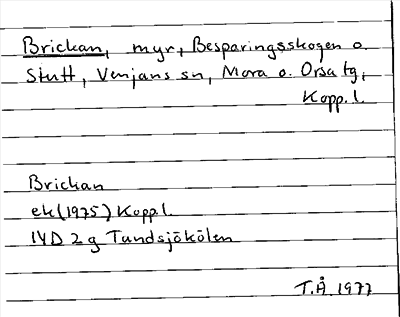 Brickan, myr, Besparingsskogen o.
Stutt, Venjans sn, Mora o. Orsa tg,
Kopp. l.
Brickan
ek (1975) Kopp. l.
14D 2g Tandsjökölen
T.Å. 1977